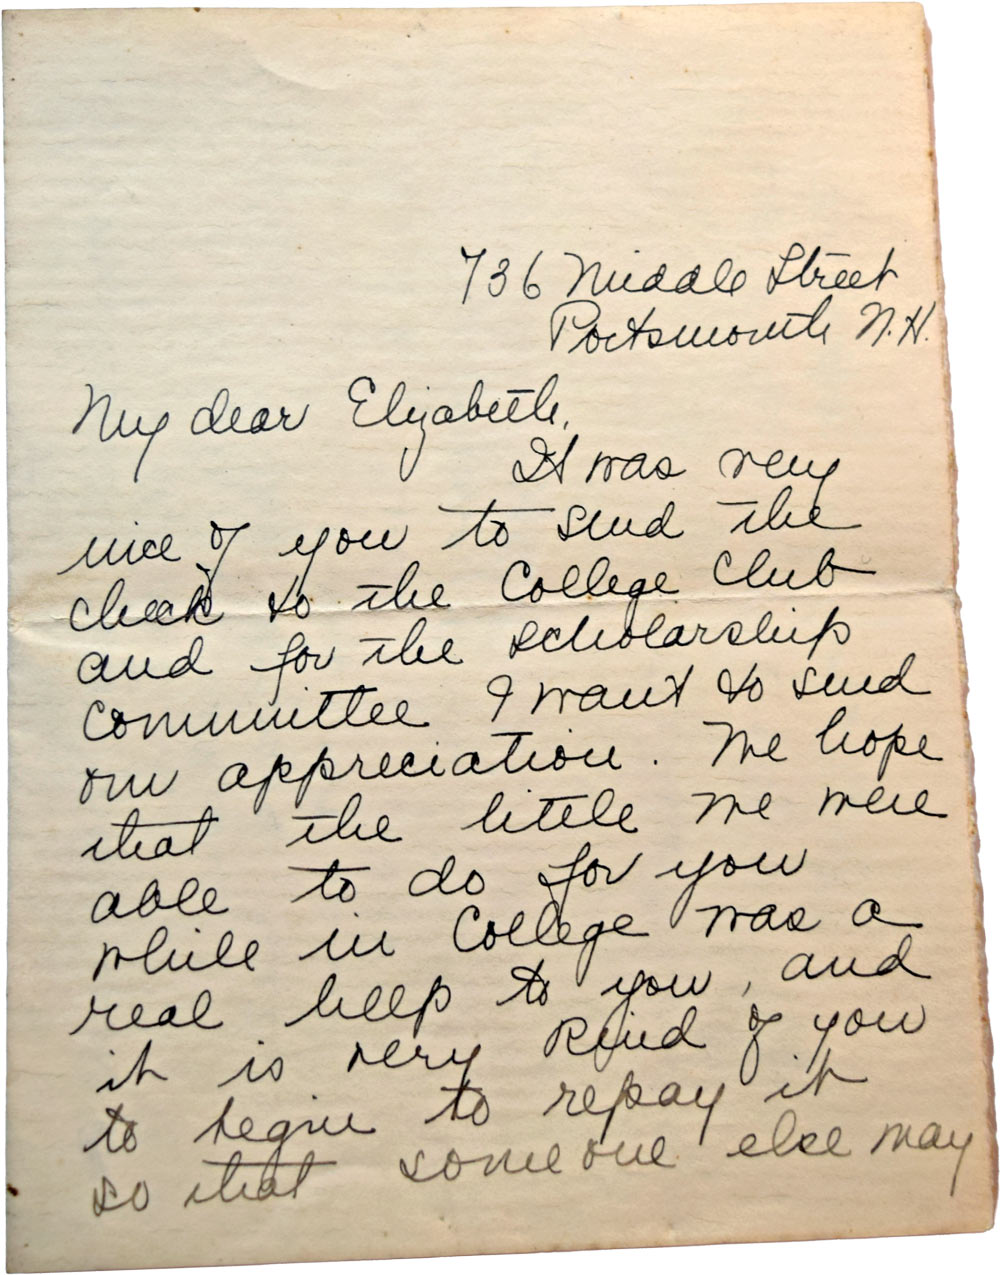 736 Middle Street
Portsmouth N.H.
My dear Elizabeth,
It was very
nice of you to send the
check to the College Club
and for the scholarship
committee I want to send
our appreciation. We hope
that the little we were
able to do for you
while in College was a
real help to you, and
it is very kind of you
to begin to repay it
so that someone else may